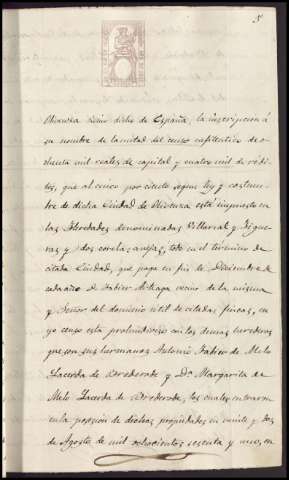 5
Olivenza reino dicho de España, la inscripcion á
su nombre de la mitad del censo enfiteutico de o-
chenta mil reales de capital y cuatro mil de rédi-
tos, que al cinco por ciento segun ley y costum-
bre de dicha Ciudad de Olivenza está impuesto en
las Heredades denominadas Villarreal y
y dos anejas, todo en el termino de
citada Ciudad, que paga en fin de Diciembre de
cada año D. Fabian vecino de la misma
y Señor del dominio util de citadas fincas, cu-
yo censo está proindiviso con los demas herederos
que son sus hermanos Antonio Fabian de Melo
Lacerda de y Dª Margarita de
Melo Lacerda de los cuales entraron
en la posesion de dichas propiedades en veinte y dos
de Agosto de mil ochocientos sesenta y uno, en